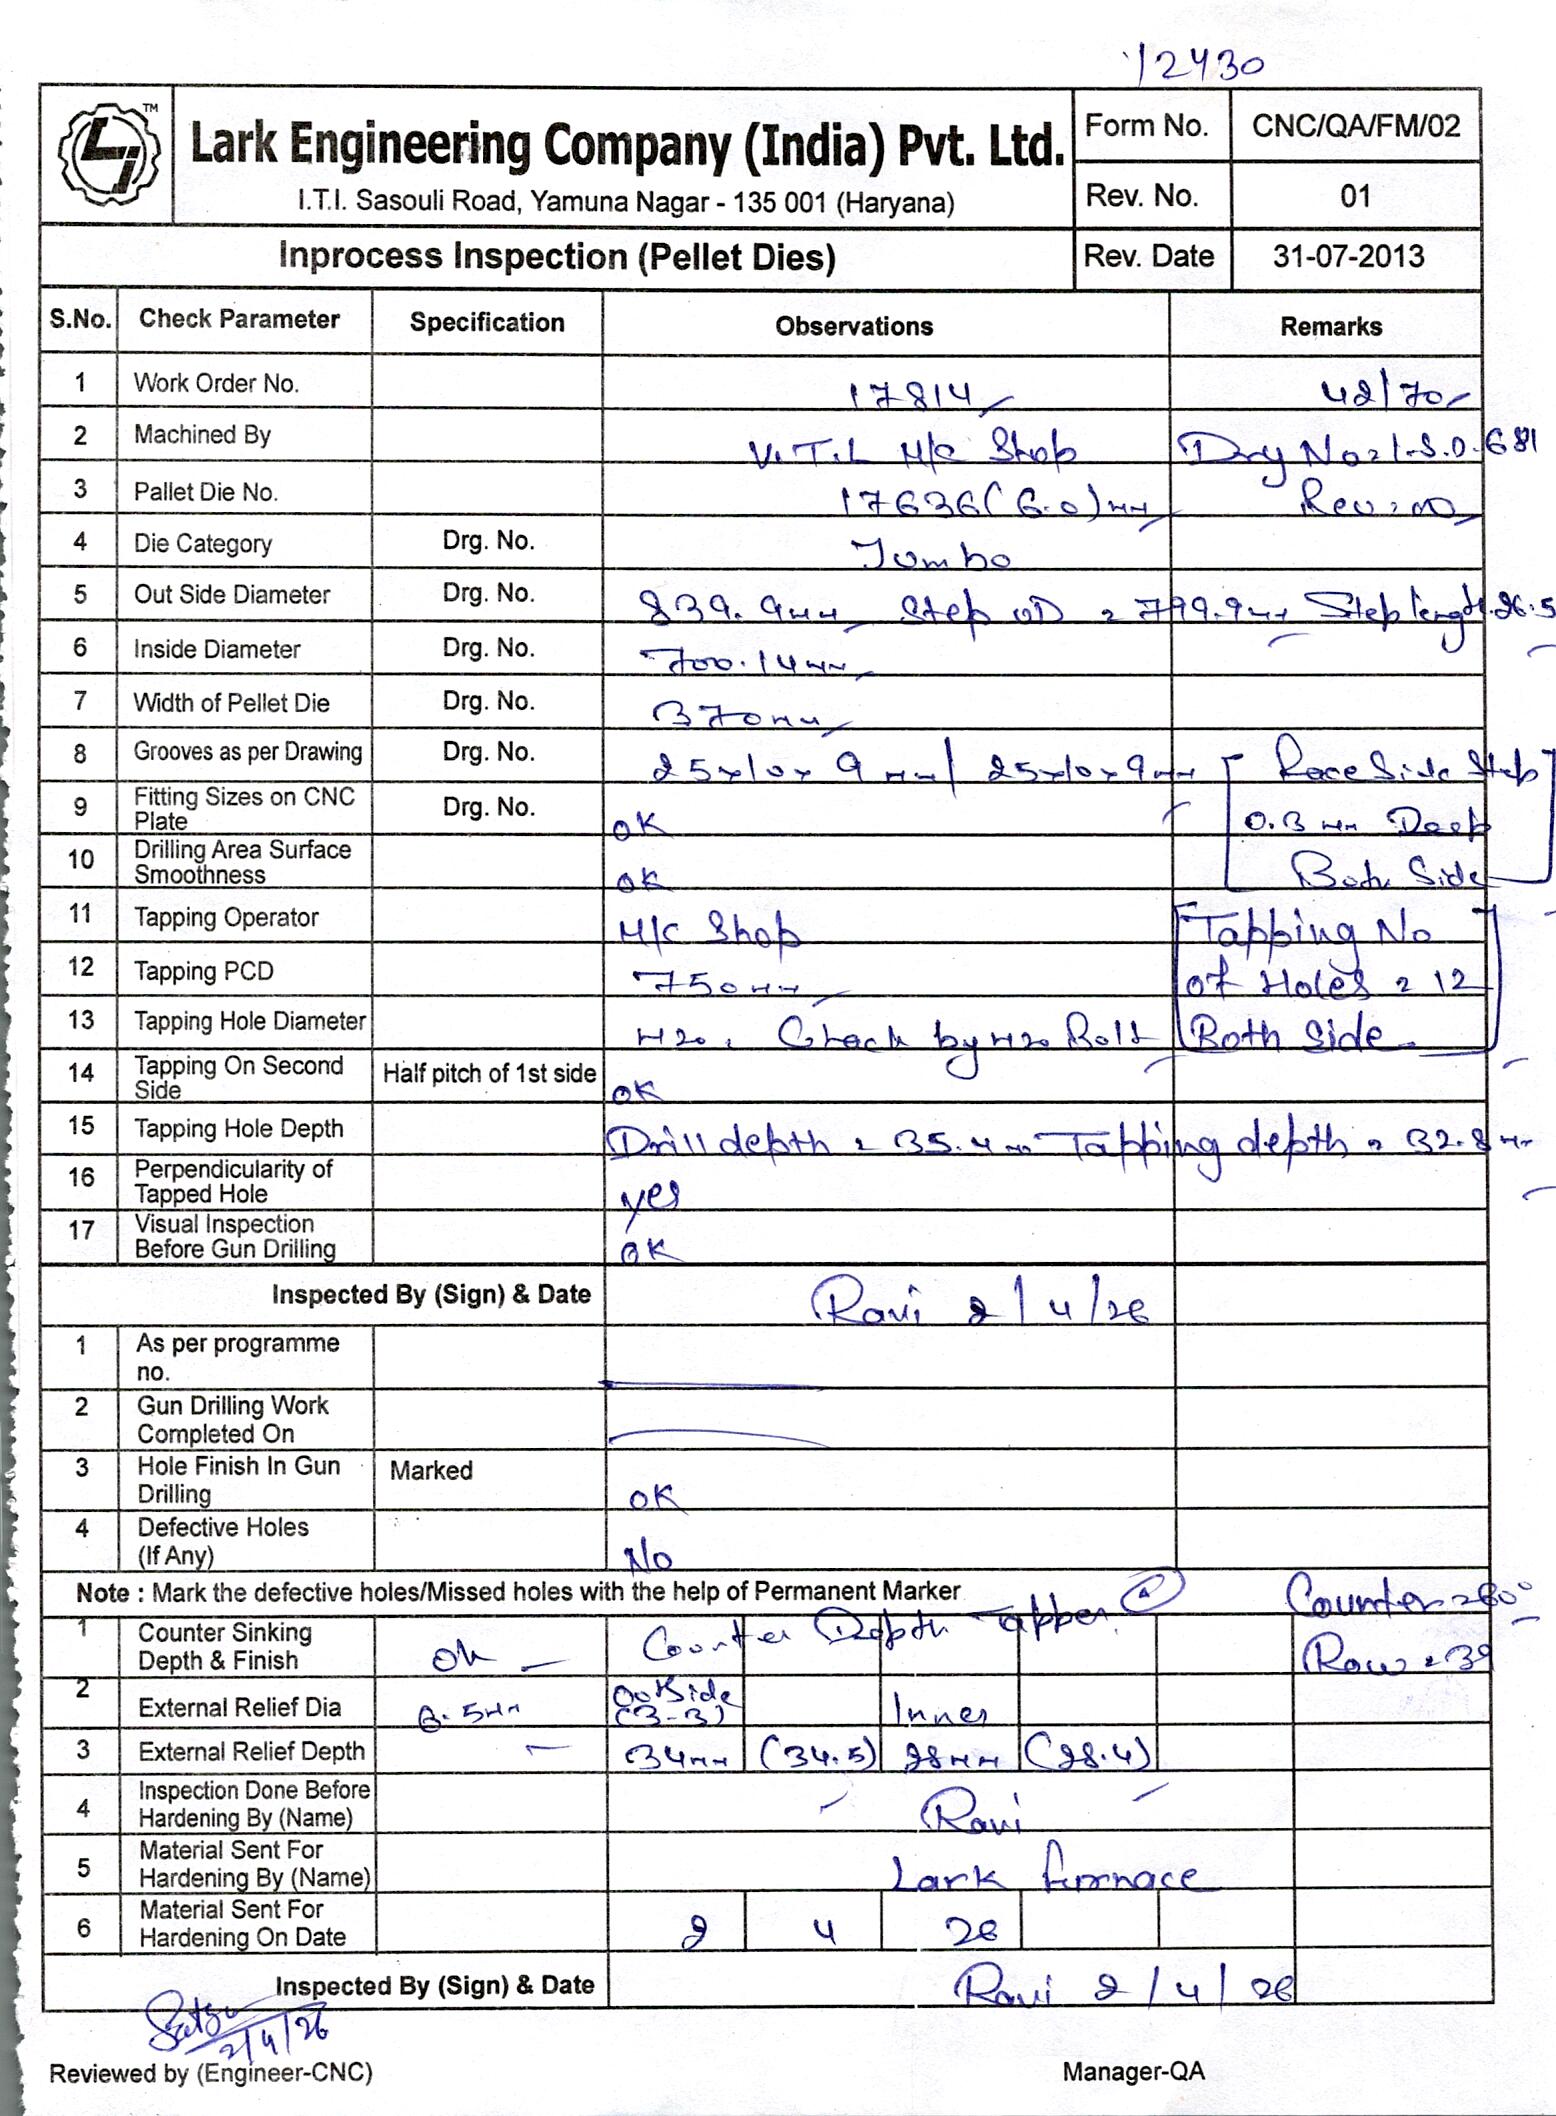 12430
Lark Engineering Company (India) Pvt. Ltd.
I.T.I. Sasouli Road, Yamuna Nagar - 135 001 (Haryana)
Form No. CNC/QA/FM/02
Rev. No. 01
Inprocess Inspection (Pellet Dies) Rev. Date 31-07-2013
S.No. Check Parameter Specification Observations Remarks
1 Work Order No. 17814 42/70
2 Machined By V.T.L M/C Shop Drg No = L.S.D. 681
3 Pallet Die No. 17636 (6.0) mm Rev: 00
4 Die Category Drg. No. Jumbo
5 Out Side Diameter Drg. No. 839.9mm Step OD = 799.9mm Step length 26.5
6 Inside Diameter Drg. No. 700.14mm
7 Width of Pellet Die Drg. No. 370mm
8 Grooves as per Drawing Drg. No. 25x10x9mm / 25x10x9mm [Race Side Step
9 Fitting Sizes on CNC Plate Drg. No. OK 0.3mm Deep
10 Drilling Area Surface Smoothness OK Both Side]
11 Tapping Operator M/C Shop [Tapping No
12 Tapping PCD 750mm of Holes = 12
13 Tapping Hole Diameter M20, Check by M20 Bolt Both Side]
14 Tapping On Second Side Half pitch of 1st side OK
15 Tapping Hole Depth Drill depth = 35.4mm Tapping depth = 32.8mm
16 Perpendicularity of Tapped Hole yes
17 Visual Inspection Before Gun Drilling OK
Inspected By (Sign) & Date Ravi 2/4/26
1 As per programme no.
2 Gun Drilling Work Completed On
3 Hole Finish In Gun Drilling Marked OK
4 Defective Holes (If Any) No
Note : Mark the defective holes/Missed holes with the help of Permanent Marker Counter = 60°
1 Counter Sinking Depth & Finish Ok Counter Depth Tapper Row = 39
2 External Relief Dia 6.5mm Outside (3-3) Inner
3 External Relief Depth 34mm (34.5) 28mm (28.4)
4 Inspection Done Before Hardening By (Name) Ravi
5 Material Sent For Hardening By (Name) Lark furnace
6 Material Sent For Hardening On Date 2 4 26
Inspected By (Sign) & Date Ravi 2/4/26
2/4/26
Reviewed by (Engineer-CNC) Manager-QA